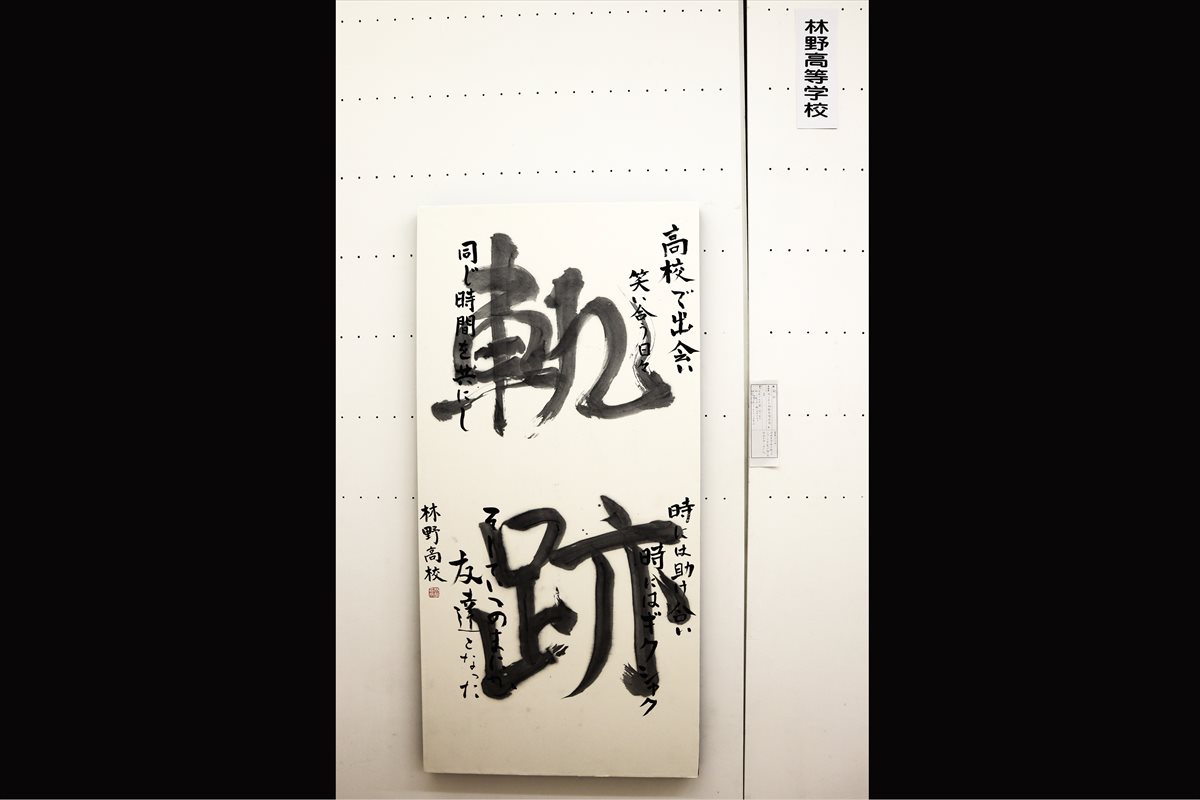 林野高等学校
軌跡
高校で出会い
笑い合う日々
同じ時間を共にし
時には助け合い
時にはギクシャク
そしていつのまにか
友達となった
林野高校